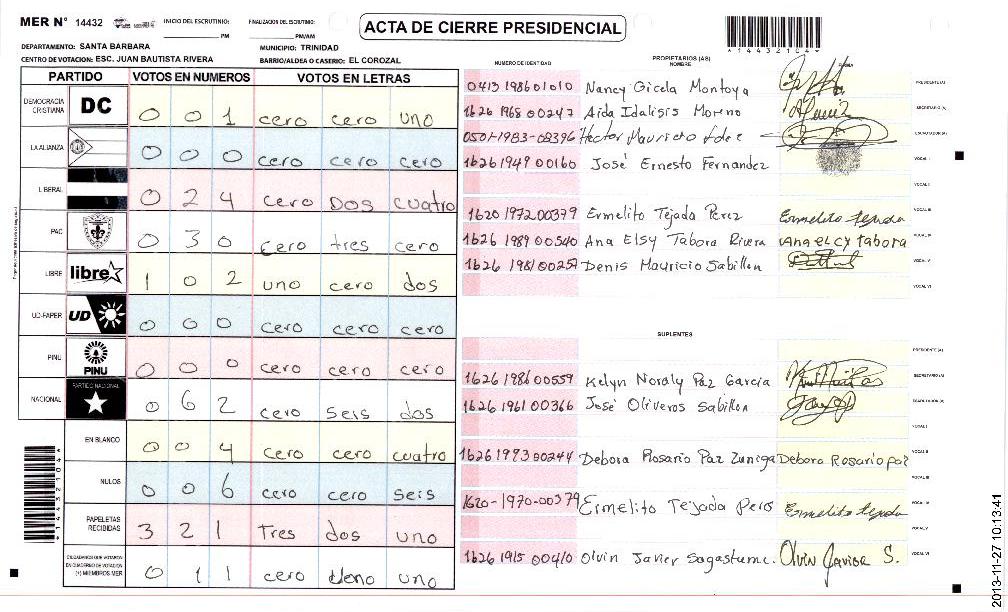 MER N° 14432 INICIO DEL ESCRUTINIO: PM FINALIZACION DEL ESCRUTINIO: PM/AM
ACTA DE CIERRE PRESIDENCIAL
*14432104*
DEPARTAMENTO: SANTA BARBARA MUNICIPIO: TRINIDAD
CENTRO DE VOTACION: ESC. JUAN BAUTISTA RIVERA BARRIO/ALDEA O CASERIO: EL COROZAL
PARTIDO VOTOS EN NUMEROS VOTOS EN LETRAS
DEMOCRACIA CRISTIANA DC 0 0 1 cero cero uno
LA ALIANZA 0 0 0 cero cero cero
LIBERAL 0 2 4 cero Dos cuatro
PAC 0 3 0 cero tres cero
LIBRE libre 1 0 2 uno cero dos
UD-FAPER UD 0 0 0 cero cero cero
PINU PINU 0 0 0 cero cero cero
NACIONAL PARTIDO NACIONAL 0 6 2 cero seis dos
EN BLANCO 0 0 4 cero cero cuatro
NULOS 0 0 6 cero cero seis
PAPELETAS RECIBIDAS 3 2 1 Tres dos uno
CIUDADANOS QUE VOTARON EN CUADERNO DE VOTACION (+) MIEMBROS MER 0 1 1 cero uno
*14432104*
NUMERO DE IDENTIDAD PROPIETARIOS (AS) NOMBRE FIRMA
0413 1986 01010 Nancy Gicela Montoya PRESIDENTE (A)
1626 1968 00247 Aida Idalisis Moreno SECRETARIO (A)
0501-1983-08396 Hector Mauricio ESCRUTADOR (A)
1626 1949 00160 José Ernesto Fernandez VOCAL I
VOCAL II
1620 1972 00379 Ermelito Tejada Perez Ermelito tejada VOCAL III
1626 1989 00540 Ana Elsy Tabora Rivera Ana elcy tabora VOCAL IV
1626 1981 00257 Denis Mauricio Sabillon VOCAL V
VOCAL VI
SUPLENTES
PRESIDENTE (A)
1626 1986 00559 Kelyn Noraly Paz Garcia SECRETARIO (A)
1626 1961 00366 José Oliveros Sabillon ESCRUTADOR (A)
VOCAL I
1626 1993 00244 Debora Rosario Paz Zuniga Debora Rosario paz VOCAL II
VOCAL III
1620-1970-00379 Ermelito Tejada Peres Ermelito tejada VOCAL IV
VOCAL V
1626 1915 00410 Olvin Javier Sagastume. Olvin Javier S. VOCAL VI
2013-11-27 10:13:41